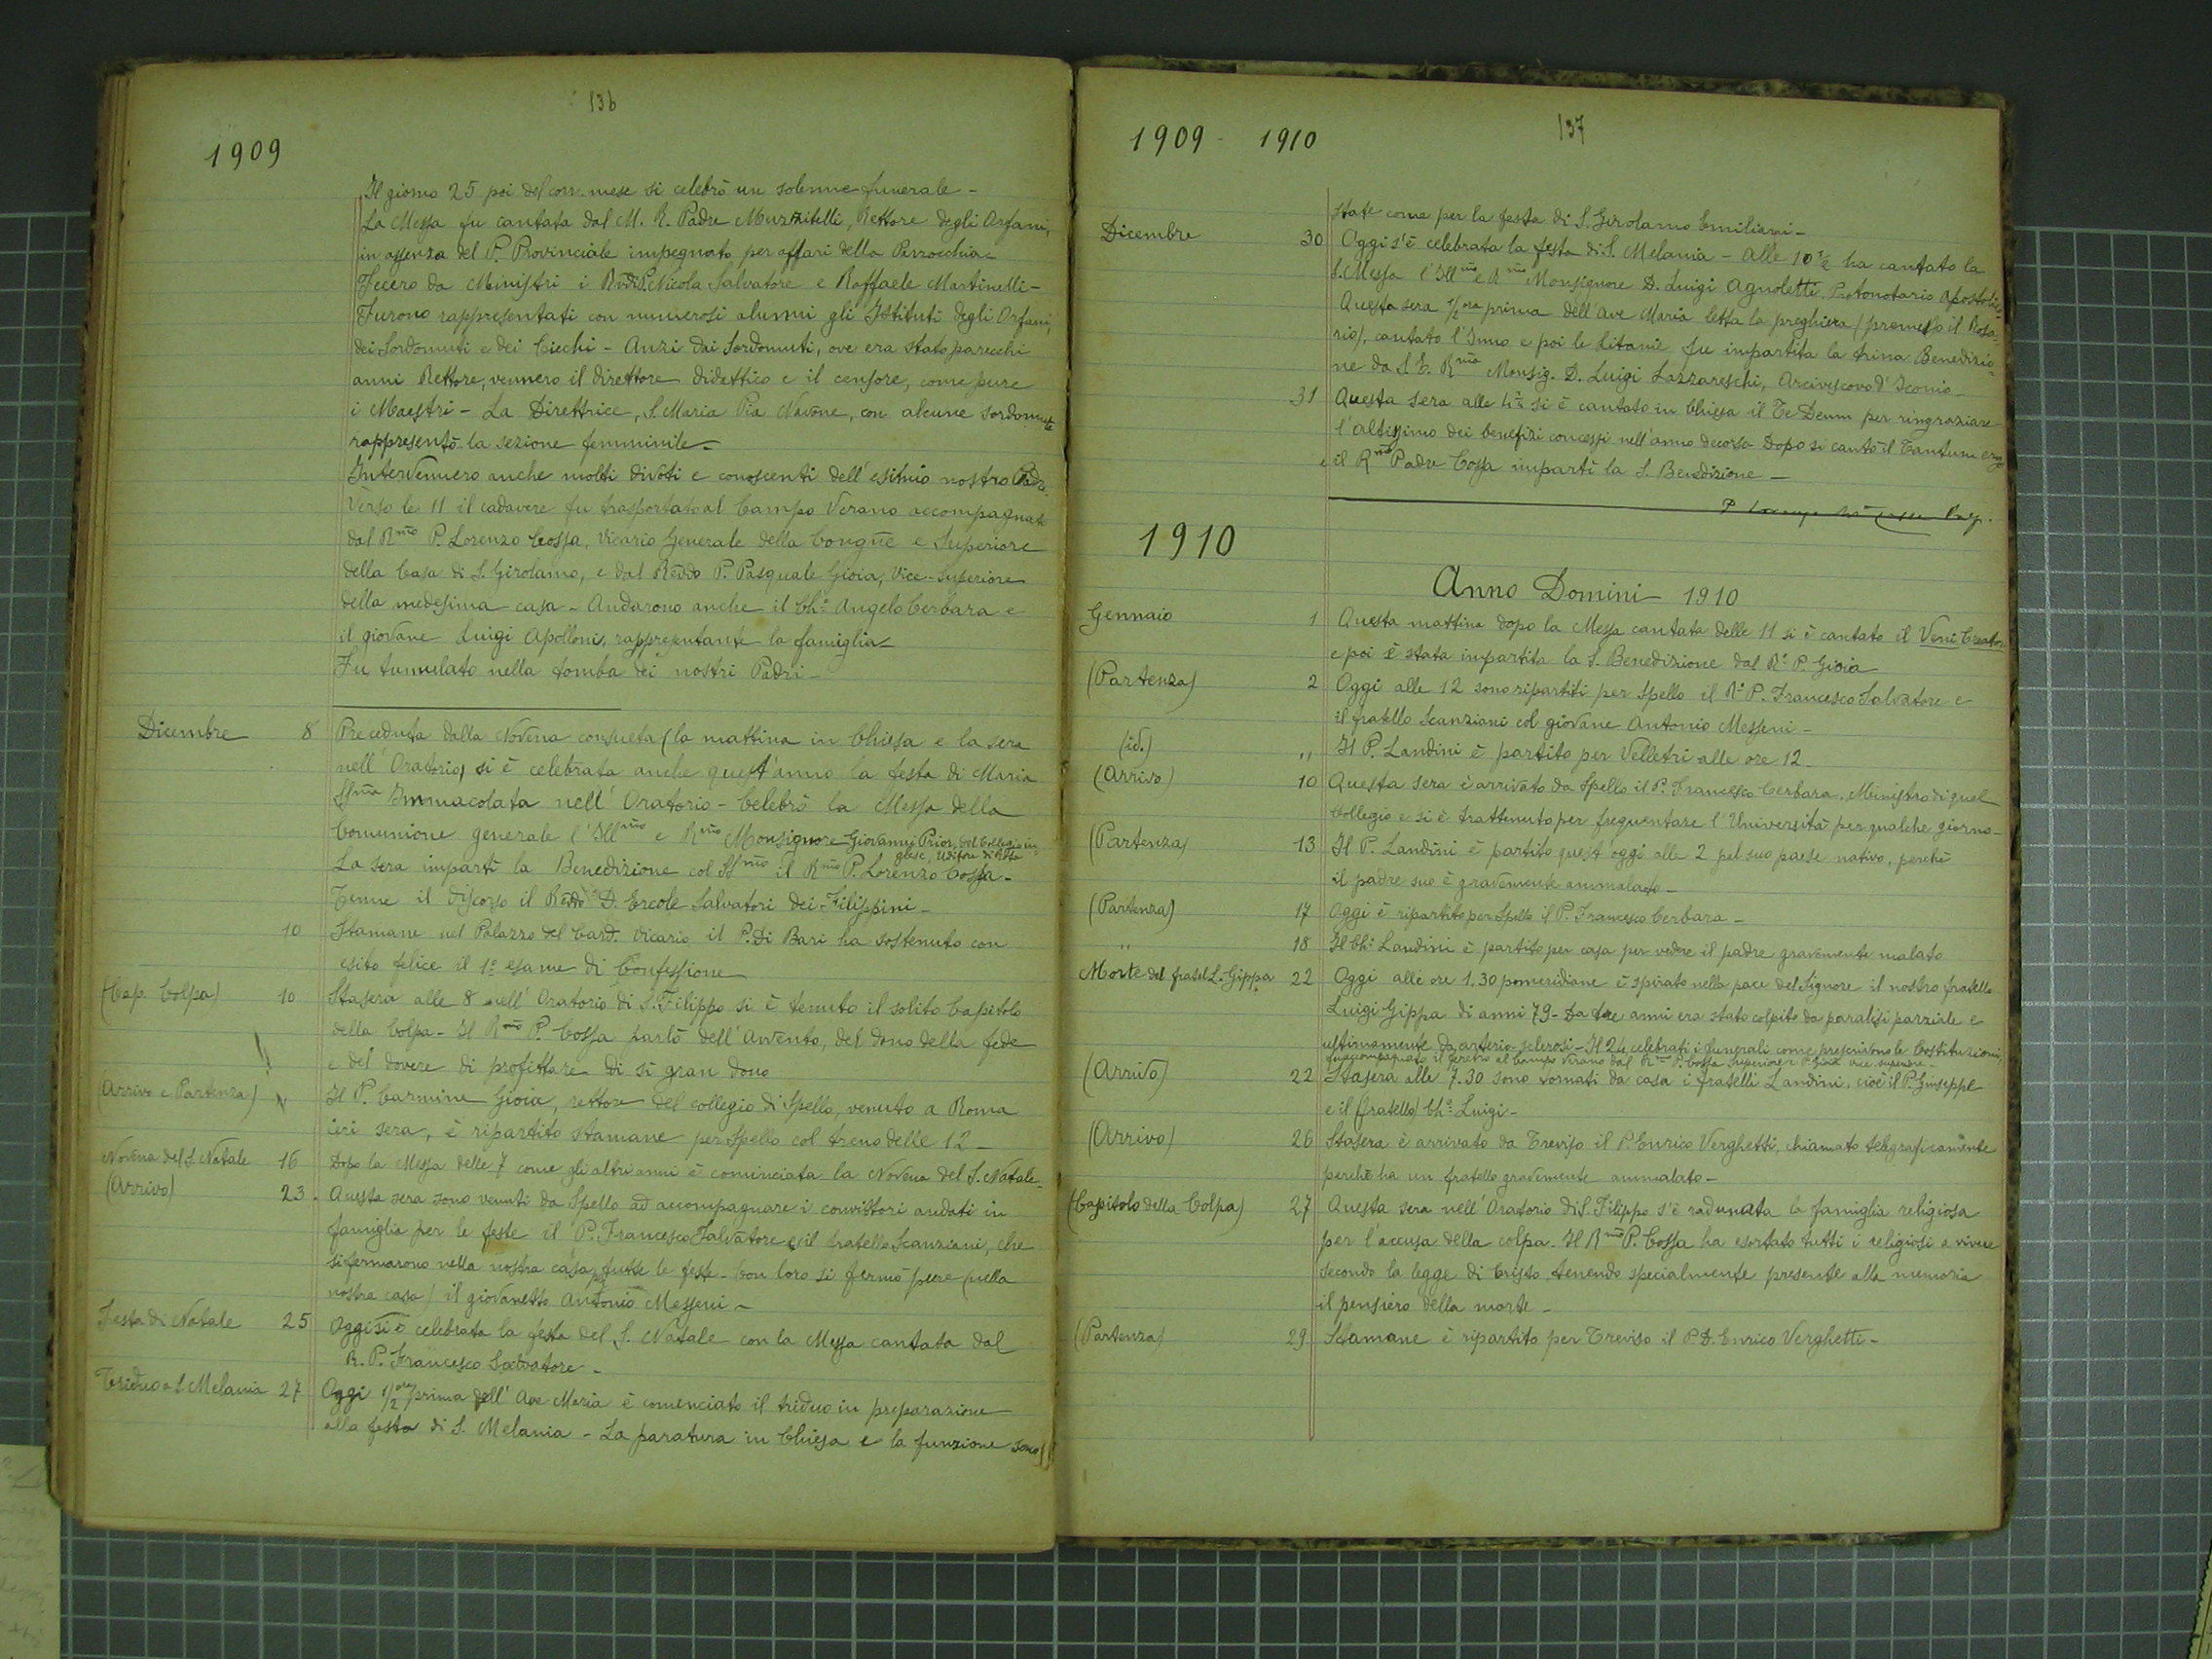 136
1909
Il giorno 25 poi del corr. mese si celebrò un solenne funerale -
La Messa fu cantata dal M. R. Padre Muzzitelli, Rettore degli Orfani,
in assenza del P. Provinciale impegnato per affari della Parrocchia -
Fecero da Ministri i P. Nicola Salvatore e Raffaele Martinelli -
Furono rappresentati con numerosi alunni gli Istituti degli Orfani,
dei Sordomuti e dei Ciechi - Anzi dai Sordomuti, ove era stato parecchi
anni Rettore, vennero il direttore didattico e il censore, come pure
i Maestri - La Direttrice, S. Maria Pia Navone, con alcune sordomute
rappresentò la sezione femminile -
Intervennero anche molti divoti e conoscenti dell'esimio nostro Padre.
Verso le 11 il cadavere fu trasportato al Campo Verano accompagnato
dal Rmo P. Lorenzo Cossa, Vicario Generale della Congne e Superiore
della Casa di S. Girolamo, e dal Reddo P. Pasquale Gioia, Vice-Superiore
della medesima casa - Andarono anche il Ch.o Angelo Cerbara e
il giovane Luigi Apolloni, rappresentante la famiglia -
Fu tumulato nella tomba dei nostri Padri -
Dicembre 8 Preceduta dalla Novena consueta (la mattina in Chiesa e la sera
nell'Oratorio) si è celebrata anche quest'anno la festa di Maria
SSma Immacolata nell'Oratorio - Celebrò la Messa della
Comunione generale l'Illmo e Rmo Monsignore Giovanni Prior, del Collegio in-
glese, Uditore di Rota
La sera impartì la Benedizione col SSmo il Rmo P. Lorenzo Cossa -
Tenne il discorso il Reddo D. Ercole Salvatori dei Filippini -
10 Stamane nel Palazzo del Card. Vicario il P. Di Bari ha sostenuto con
esito felice il 1o esame di Confessione
(Cap. Colpa) 10 Stasera alle 8 nell'Oratorio di S. Filippo si è tenuto il solito Capitolo
della Colpa - Il Rmo P. Cossa parlò dell'Avvento, del dono della fede
e del dovere di profittare di sì gran dono
(Arrivo e Partenza) Il P. Carmine Gioia, rettore del collegio di Spello, venuto a Roma
ieri sera, è ripartito stamane per Spello col treno delle 12 -
Novena del S. Natale 16 Dopo la Messa delle 7 come gli altri anni è cominciata la Novena del S. Natale -
(Arrivo) 23. Questa sera sono venuti da Spello ad accompagnare i convittori andati in
famiglia per le feste il P. Francesco Salvatore e il fratello Scanziani, che
si fermarono nella nostra casa tutte le feste - Con loro si fermò pure (nella
nostra casa) il giovanetto Antonio Messeni -
Festa di Natale 25 Oggi si è celebrata la festa del S. Natale con la Messa cantata dal
R. P. Francesco Salvatore -
Triduo a S. Melania 27 Oggi 1/2 ora prima dell'Ave Maria è comenciato il triduo in preparazione
alla festa di S. Melania - La paratura in Chiesa e la funzione sono
137
1909 - 1910
state come per la festa di S. Girolamo Emiliani -
Dicembre 30 Oggi s'è celebrata la festa di S. Melania - Alle 10 1/2 ha cantato la
S. Messa l'Illmo e Rmo Monsignore D. Luigi Agnoletti, Protonotario Apostolico
Questa sera 1/2 ora prima dell'Ave Maria letta la preghiera (premesso il Rosa-
rio), cantato l'Inno e poi le Litanie fu impartita la trina Benedizio-
ne da S. E. Rma Monsig. D. Luigi Lazzareschi, Arcivescovo d'Iconio -
31 Questa sera alle 4 1/2 si è cantato in Chiesa il Te Deum per ringraziare
l'Altissimo dei benefizi concessi nell'anno decorso Dopo si cantò il Tantum ergo
e il Rmo Padre Cossa impartì la S. Benedizione -
1910
Anno Domini 1910
Gennaio 1 Questa mattina dopo la Messa cantata delle 11 si è cantato il Veni Creator
e poi è stata impartita la S. Benedizione dal R.o P. Gioia
(Partenza) 2 Oggi alle 12 sono ripartiti per Spello il R.o P. Francesco Salvatore e
il fratello Scanziani col giovane Antonio Messeni -
(id.) " Il P. Landini è partito per Velletri alle ore 12.
(Arrivo) 10 Questa sera è arrivato da Spello il P. Francesco Cerbara, Ministro di quel
Collegio e si è trattenuto per frequentare l'Università per qualche giorno -
(Partenza) 13 Il P. Landini è partito quest'oggi alle 2 pel suo paese nativo, perchè
il padre suo è gravemente ammalato -
(Partenza) 17 Oggi è ripartito per Spello il P. Francesco Cerbara -
" 18 Il Ch.o Landini è partito per casa per vedere il padre gravemente malato
Morte del fratel L. Gippa 22 Oggi alle ore 1.30 pomeridiane è spirato nella pace del Signore il nostro fratello
Luigi Gippa di anni 79 - Da tre anni era stato colpito da paralisi parziale e
ultimamente da arterio-sclerosi - Il 24 celebrati i funerali come prescrivono le Costituzioni,
fu accompagnato il feretro al Campo Verano dal Rmo P. Cossa Superiore e P. Gioia vice superiore -
(Arrivo) 22 Stasera alle 7.30 sono tornati da casa i fratelli Landini, cioè il P. Giuseppe
e il (fratello) Ch.o Luigi -
(Arrivo) 26 Stasera è arrivato da Treviso il P. Enrico Verghetti, chiamato telegraficamente
perchè ha un fratello gravemente ammalato -
(Capitolo della Colpa) 27 Questa sera nell'Oratorio di S. Filippo s'è radunata la famiglia religiosa
per l'accusa della colpa. Il Rmo P. Cossa ha esortato tutti i religiosi a vivere
secondo la legge di Cristo, tenendo specialmente presente alla memoria
il pensiero della morte -
(Partenza) 29 Stamane è ripartito per Treviso il P. D. Enrico Verghetti -